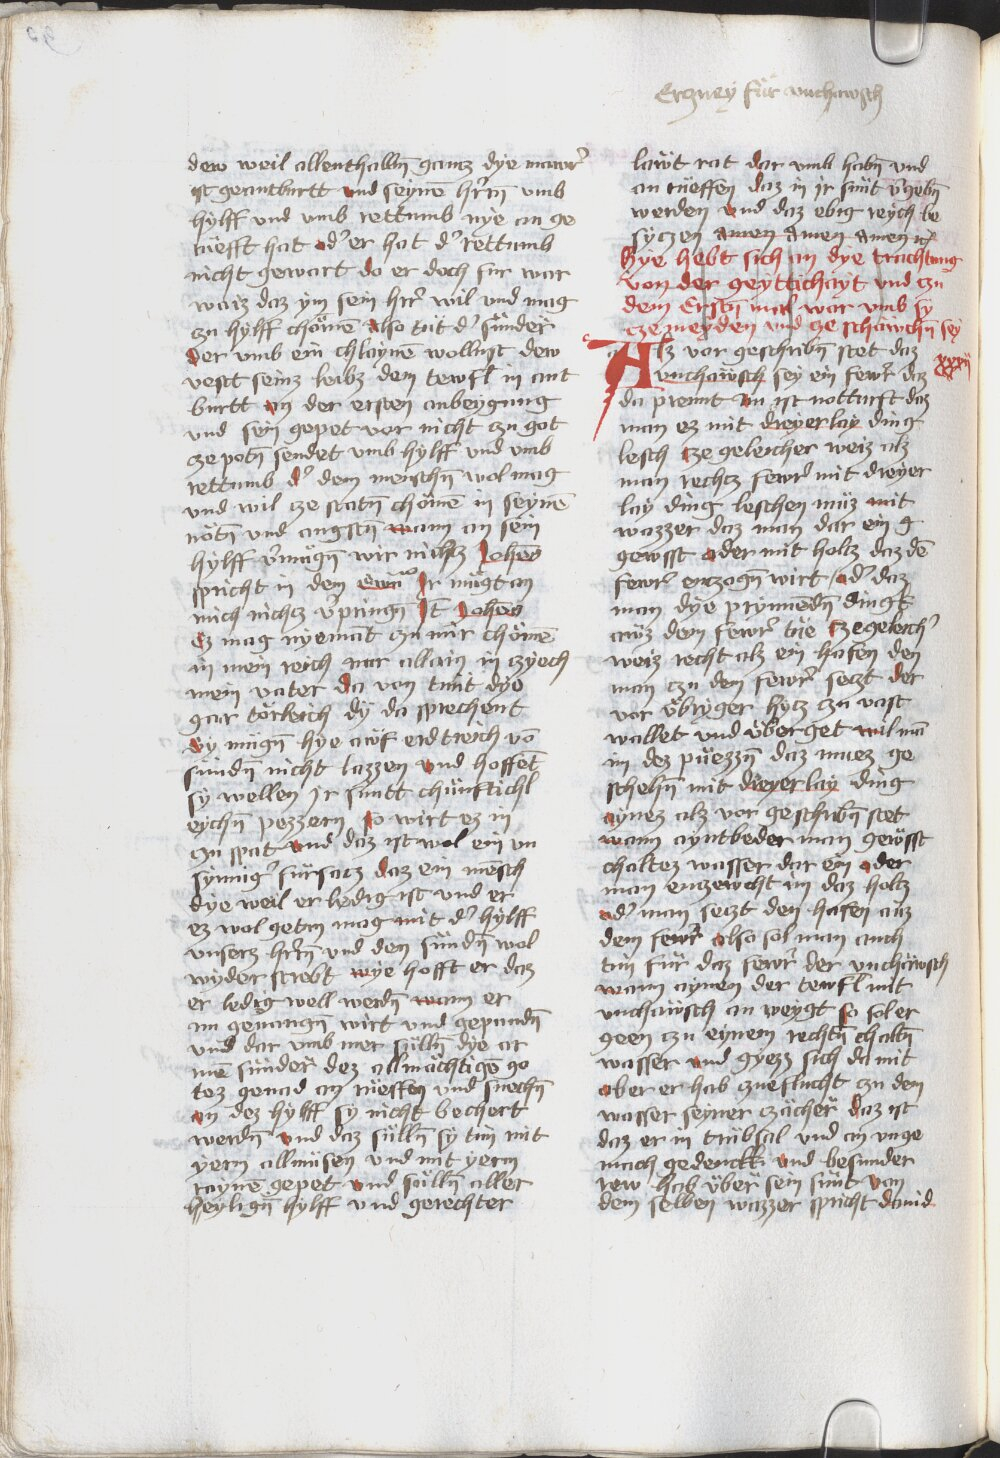 Erczney für vnchawsch
dew weil allenthallñ gancz dye mawr̄
ist geantburtt vnd seyne hr̄rn̄ vmb
hylff vnd vmb rettumb nye an ge
rüefft hat ad̕ er hat d̕ rettumb
nicht gewart do er doch für war
waiz daz ym sein hr̄r wil vnd mag
czu hylff chömē also tüt d̕ sünder
der vmb ein chlaynē wollust dew
vestt seinz leibz dem tewfl in ant
burtt an der ersten anbeygung
vnd sein gepet vor nicht czu got
cze potn̄ sendet vmb hylff vnd vmb
rettumb d̕ dem menschn̄ wol mag
vnd wil cze statn̄ chömē in seynē
nötn̄ vnd angstn̄ wann an sein
hylff v̕mügn̄ wir nichtz Johēs
spricht in dem ewā Ir mügt an
mich nichcz v̕pringn̄ It̄ Johēs
Ez mag nyemāt czu mir chömē
in mein reich nur allain in czyech
mein vater da von tünt dye
gar törleich dy da sprechent
wy mügn̄ hye awf erdtreich vō
sündn̄ nicht lazzen vnd hoffēt
sy wellen Jr süntt chünfticl
eychn̄ pezzern so wirt ez in
czu spat vnd daz ist wol ein vn
synnig̕ fürsacz daz ein mēsch
dye weil er ledig ist vnd er
ez wol getan mag mit d̕ hylff
vnserz hr̄rn̄ vnd den sündn̄ wol
wyder strebt wye hofft er daz
er ledig well werdn̄ wann er
nu geuangn̄ wirt vnd gepundn̄
vnd dar vmb mer süllñ dye ar
mē sünder dez allmächtigē go
tez genad an rüeffen vnd suechn̄
an dez hylff sy nicht bechert
werdn̄ vnd daz süllñ sy tün mit
yerm allmüsen vnd mit yerm
raynē gepet vnd süllñ aller
heyligñ hylff vnd gerechter
läwt rat dar vmb habn̄ vnd
an rüeffen daz in jr sünt v̕gebn̄
werden vnd daz ebig reych be
syczen amen amen amen
Hye hebt sich an dye trachtung
von der geyttichayt vnd czu
dem Erstn̄ mal war vmb sy
cze meyden vnd ze schawchn̄ sey
xxxij
Alz vor geschribn̄ stet daz
vnchäwsch sey ein fewr̄ daz
da prennt nu ist notturft daz
man ez mit dreyerlay ding
lesch cze geleicher weiz alz
man rechcz fewr̄ mit dreyer
lay ding leschen müz mit
wazzer daz man dar ein g
gewsst ader mit holtz daz dē
fewr̄ enczogn̄ wirt ad̕ daz
man dye prynnēdn̄ dingk
auz dem fewr̄ tüe Czegeleich̕
weiz recht alz ein hafen den
man czu dem fewr̄ seczt der
vor übryger hycz czu vast
wallet vnd überget wil mā
im dez püezzn̄ daz muez ge
schehn̄ mit dreyerlay ding
aynez alz vor geschribn̄ stet
wann ayntbeder man gewsst
chaltez wasser dar ein ader
man enczewcht im daz holtz
ad̕ man seczt den hafen auz
dem fewr̄ also sol man auch
tün für daz fewr̄ der vnchäwsch
wann aynen der tewfl mit
vnchäwsch an weygt so sol er
geen czu eynem rechtn̄ chaltn̄
wasser vnd gyezz sich da mit
aber er hab czueflucht czu dem
wasser seyner czächer daz ist
daz er in trübsal vnd an vnge
mach gedenckk vnd besunder
rew hab über sein sünt von
dem selben wazzer spricht dauid